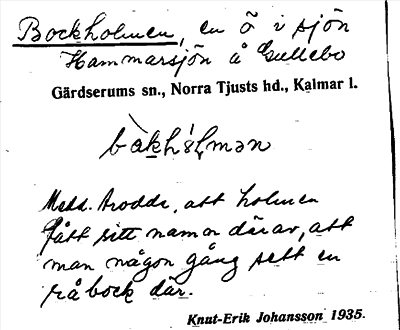 Bockholmen, en ö i sjön
Hammarsjön å Gullebo
Gärdserums sn., Norra Tjusts hd., Kalmar l.
Medd. trodde, att holmen
fått sitt namn därav, att
man någon gång sett en
råbock där.
Knut-Erik Johansson 1935.